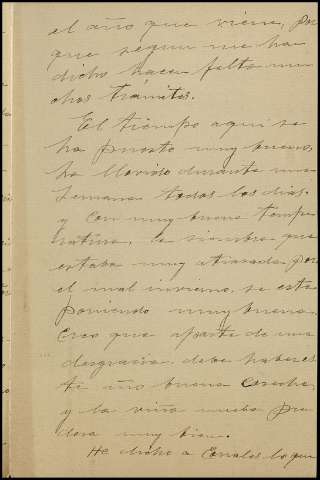 el año que viene, por
que segun me ha
dicho hacen falta mu
chos trámites.
El tiempo aqui se
ha puesto muy bueno,
ha llovido durante una
semana todos los dias.
y con muy buena tempe
ratura. la siembra que
estaba muy atrasada por
el mal invierno, se está
poniendo muy buena.
Creo que aparte de una
desgracia. debe haber es
te año buena cosecha,
y la viña nueba pren
dera muy bien.
He dicho a lo que